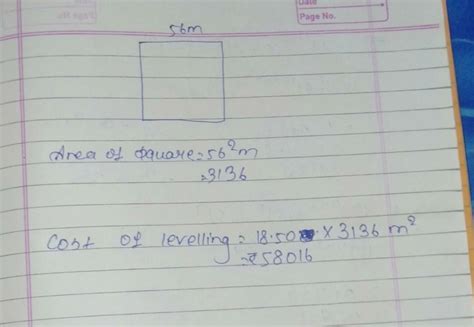 Date
Page No.
56m
Area of square = 56²m
= 3136
Cost of levelling = 18.50 × 3136 m²
= ₹58016